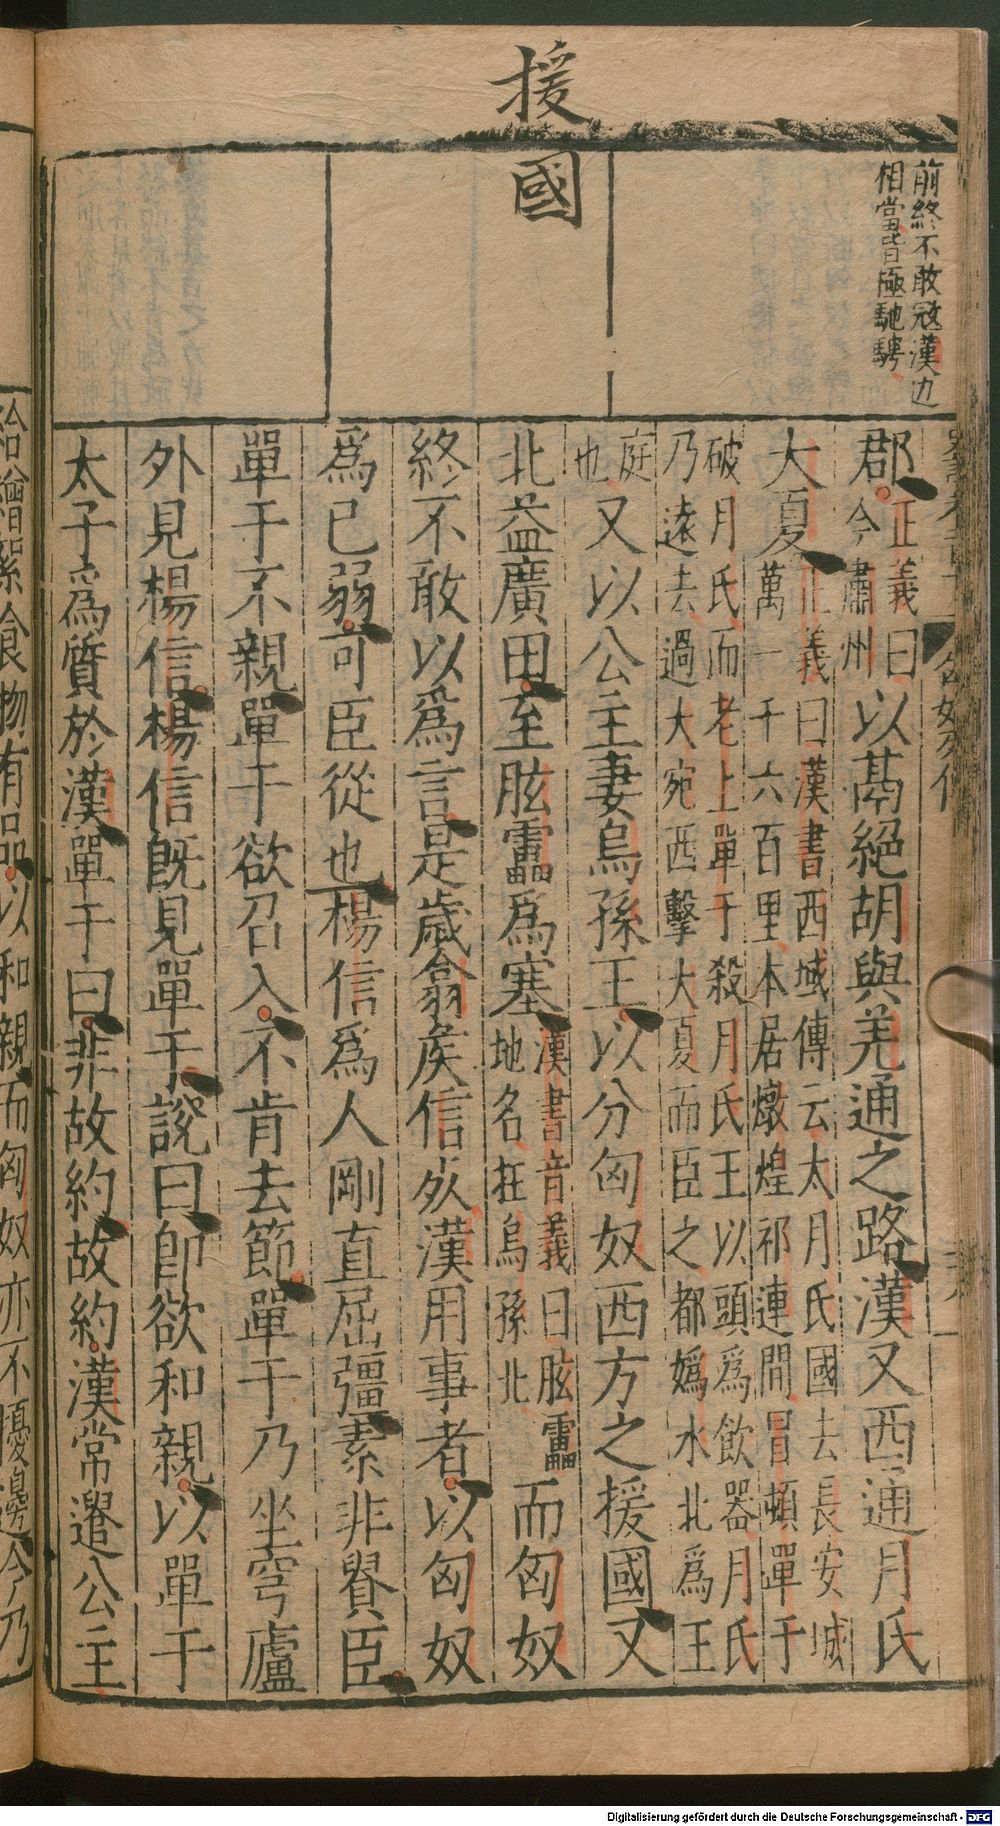 援國
前終不敢冦漢边
相當皆極馳騁
郡正義曰今肅州以鬲絕胡與羌通之路漢又西通月氏
大夏正義曰漢書西域傳云大月氏國去長安城萬一千六百里本居燉煌祁連間冒頓單于
破月氏而老上單于殺月氏王以頭為飲器月氏乃遠去過大宛西擊大夏而臣之都媯水北為王
庭也又以公主妻烏孫王以分匈奴西方之援國又
北益廣田至胘靁為塞漢書音義曰胘靁地名在烏孫北而匈奴
終不敢以為言是歲翕矦信死漢用事者以匈奴
為已弱可臣從也楊信為人剛直屈彊素非貴臣
單于不親單于欲召入不肯去節單于乃坐穹廬
外見楊信楊信既見單于說曰卽欲和親以單于
太子為質於漢單于曰非故約故約漢常遣公主
給繒絮食物有品以和親而匈奴亦不擾邊今乃
Digitalisierung gefördert durch die Deutsche Forschungsgemeinschaft - DFG